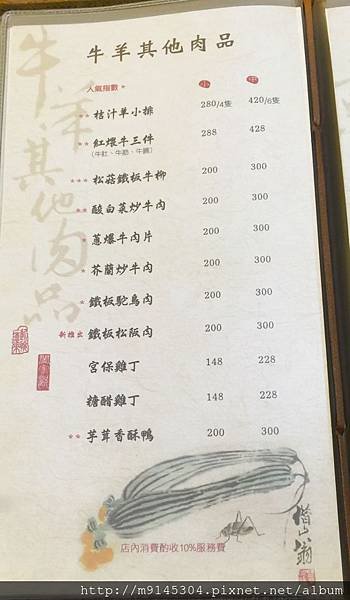 牛羊其他肉品
牛羊其他肉品
人氣指數* 小 中
** 桔汁羊小排 280/4隻 420/6隻
** 紅煨牛三件 288 428
(牛肚、牛筋、牛腩)
*** 松菇鐵板牛柳 200 300
** 酸白菜炒牛肉 200 300
* 蔥爆牛肉片 200 300
* 芥蘭炒牛肉 200 300
* 鐵板鴕鳥肉 200 300
新推出 鐵板松阪肉 200 300
宮保雞丁 148 228
糖醋雞丁 148 228
** 芋茸香酥鴨 200 300
店內消費酌收10%服務費
http://m9145304.pixnet.net/album